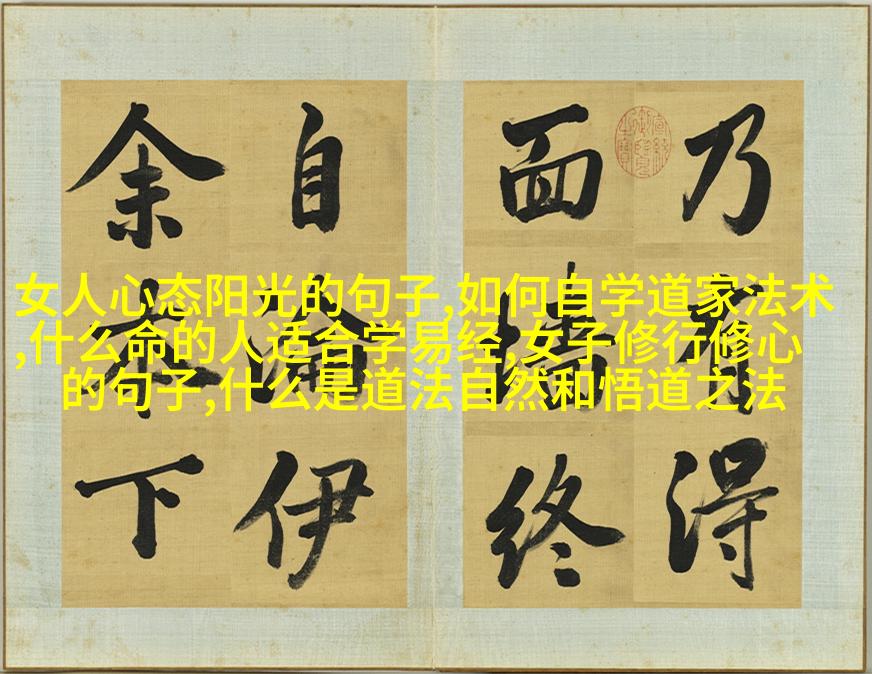 女人心态阳光的句子,如何自学道家法术
,什么命的人适合学易经,女子修行修心
的句子,什么是道法自然和悟道之法
乃有得
面墙終
自伊
余本下